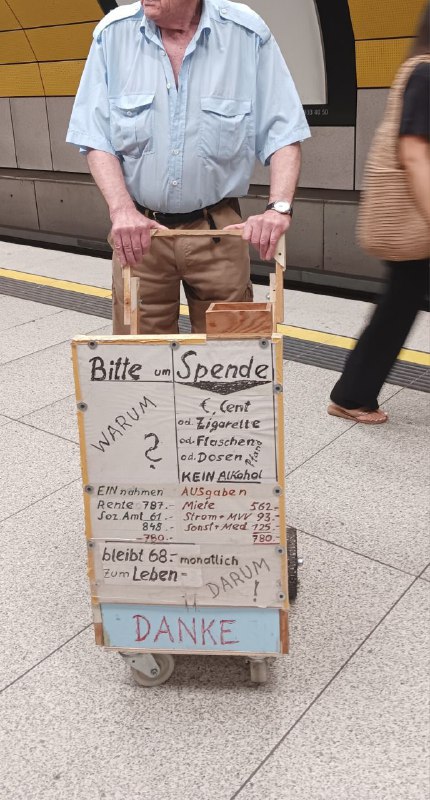 Bitte um Spende
WARUM
?
€, Cent
od. Zigarette
od. Flaschen
od. Dosen Pfand
KEIN Alkohol
EINnahmen
Rente 787.-
Soz Amt 61.-
848.-
-780.-
AUSgaben
Miete 562.-
Strom + MVV 93.-
Sonst + Med 125.-
780.-
bleibt 68.- monatlich
zum Leben -
DARUM
!
DANKE